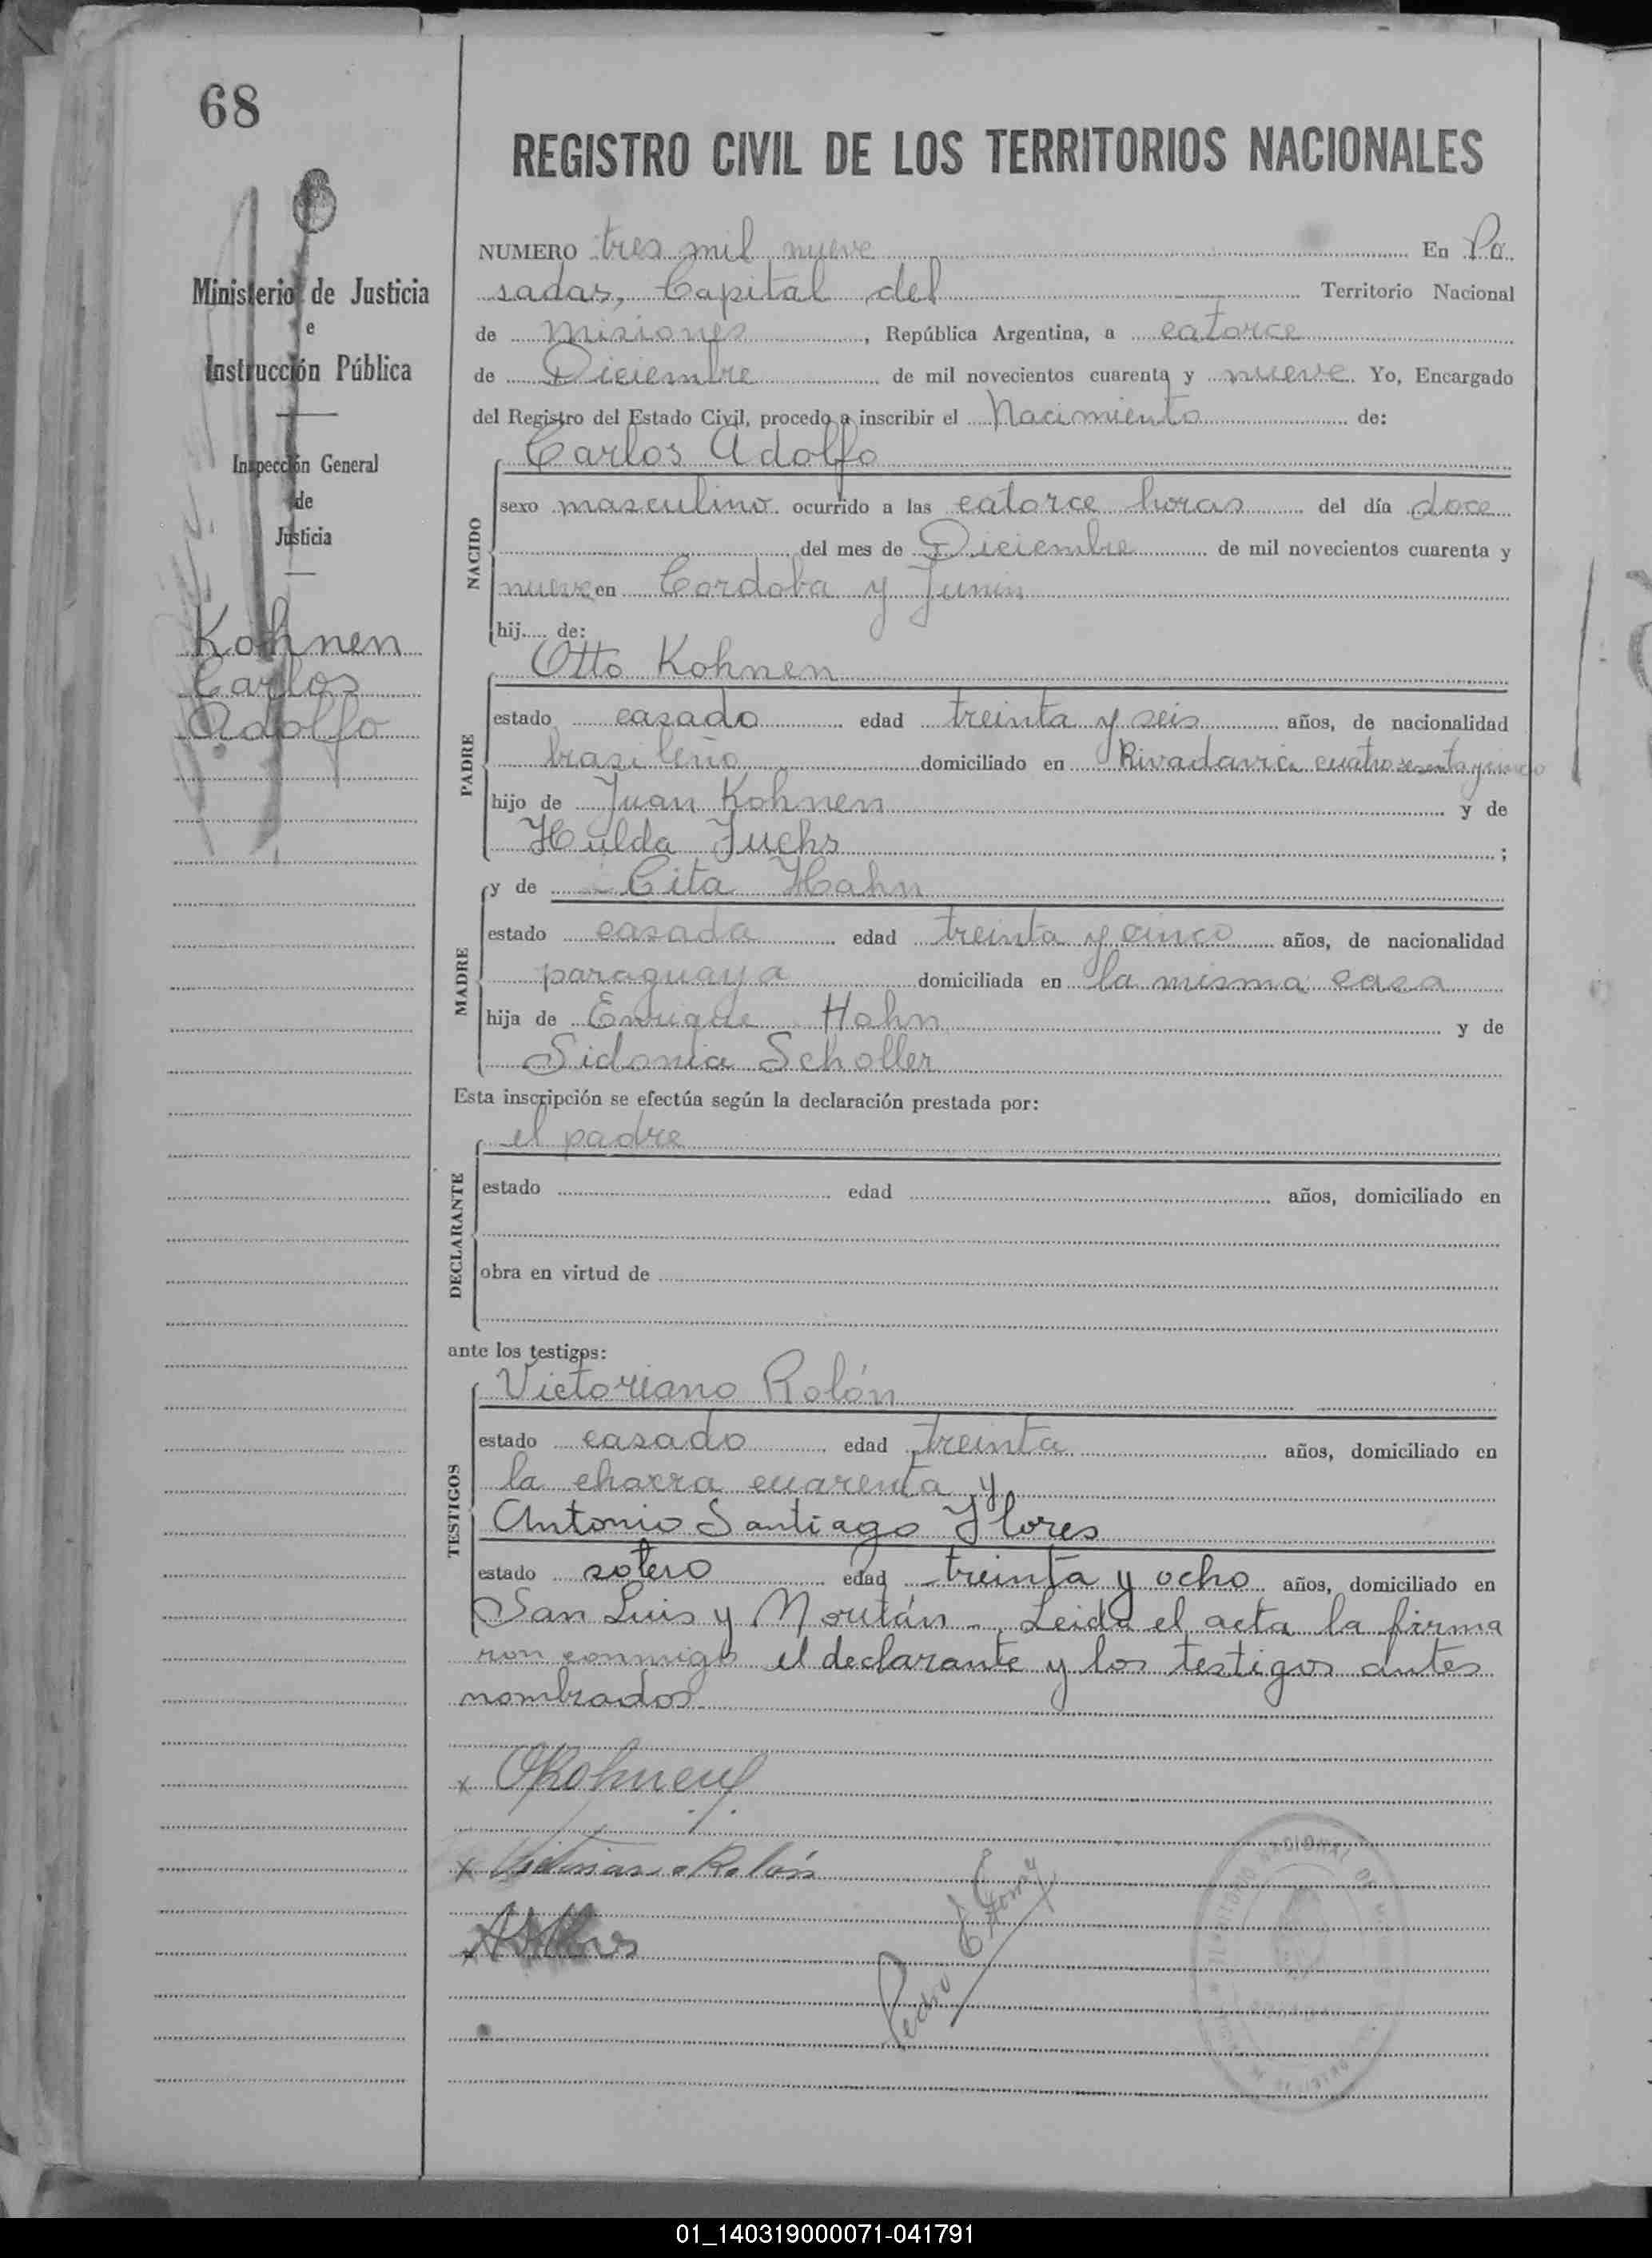 68
REGISTRO CIVIL DE LOS TERRITORIOS NACIONALES
Ministerio de Justicia
e
Instrucción Pública
Inspección General
de
Justicia
Kohnen
Carlos
Adolfo
NUMERO tres mil nueve En Po
sadas, Capital del Territorio Nacional
de Misiones, República Argentina, a catorce
de Diciembre de mil novecientos cuarenta y nueve. Yo, Encargado
del Registro del Estado Civil, procedo a inscribir el Nacimiento de:
Carlos Adolfo
NACIDO
sexo masculino ocurrido a las catorce horas del día doce
del mes de Diciembre de mil novecientos cuarenta y
nueve en Córdoba y Junin
hij de:
Otto Kohnen
PADRE
estado casado edad treinta y seis años, de nacionalidad
brasileño domiciliado en Rivadavia cuatro sesenta y cinco
hijo de Juan Kohnen y de
Hulda Fuchs ;
y de Cita Hahn
MADRE
estado casada edad treinta y cinco años, de nacionalidad
paraguaya domiciliada en la misma casa
hija de Enrique Hahn y de
Sidonia Scholler
Esta inscripción se efectúa según la declaración prestada por:
el padre
DECLARANTE
estado edad años, domiciliado en
obra en virtud de
ante los testigos:
Victoriano Rolón
TESTIGOS
estado casado edad treinta años, domiciliado en
la chacra cuarenta y
Antonio Santiago Flores
estado soltero edad treinta y ocho años, domiciliado en
San Luis y Moritán -. Leida el acta la firma
ron conmigo el declarante y los testigos antes
nombrados
x OKohnen
x Victoriano Rolón
Pedro
01_140319000071-041791